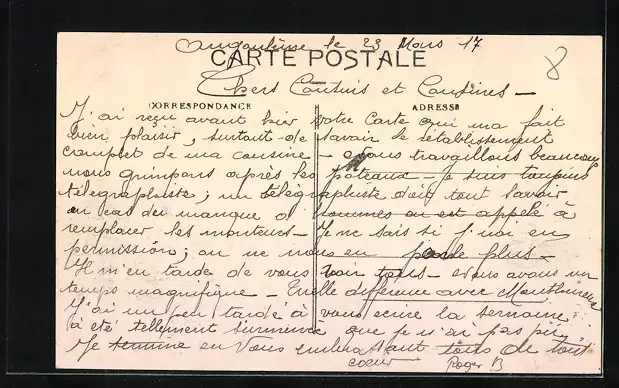 Angoulême le 23 Mars 17
CARTE POSTALE
8
Chers Cousins et Cousines —
CORRESPONDANCE
ADRESSE
J'ai reçu avant hier votre Carte qui m'a fait
bien plaisir, surtout de savoir le rétablissement
complet de ma cousine — Nous travaillons beaucoup
nous grimpons après les poteaux — Je suis toujours
télégraphiste ; un télégraphiste doit tout savoir
en cas de manque d'hommes on est appelé à
remplacer les monteurs — Je ne sais si j'irai en
permission ; on ne nous en parle plus —
Il m'en tarde de vous voir tous — Nous avons un
temps magnifique — Quelle différence avec
J'ai un peu tardé à vous écrire la semaine
à été tellement que je n'ai pas pu
Je termine en Vous embrassant tous de tout
coeur
Roger B